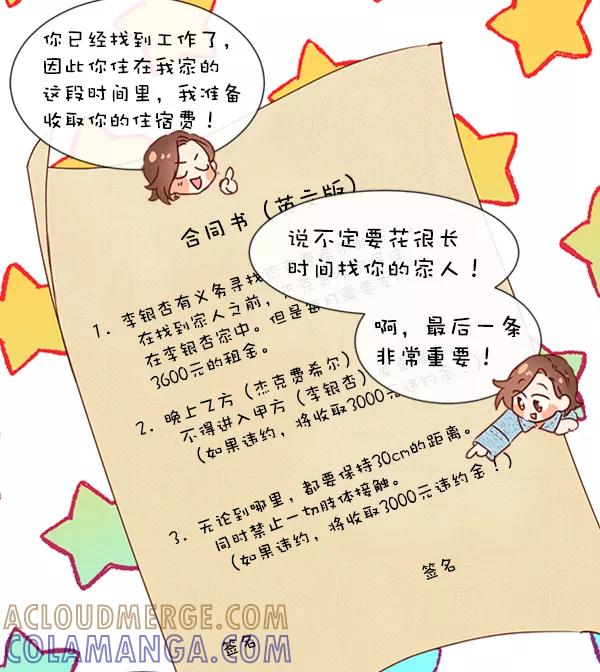 你已经找到工作了，
因此你住在我家的
这段时间里，我准备
收取你的住宿费！
合同书（英文版）
说不定要花很长
时间找你的家人！
啊，最后一条
非常重要！
1. 李银杏有义务寻找
在找到家人之前，
在李银杏家中。但是每月需要支
3600元的租金。
2. 晚上乙方（杰克费希尔）
不得进入甲方（李银杏）
（如果违约，将收取3000元违约金！）
3. 无论到哪里，都要保持30cm的距离。
同时禁止一切肢体接触。
（如果违约，将收取3000元违约金！）
签名
签名
ACLOUDMERGE.COM
COLAMANGA.COM